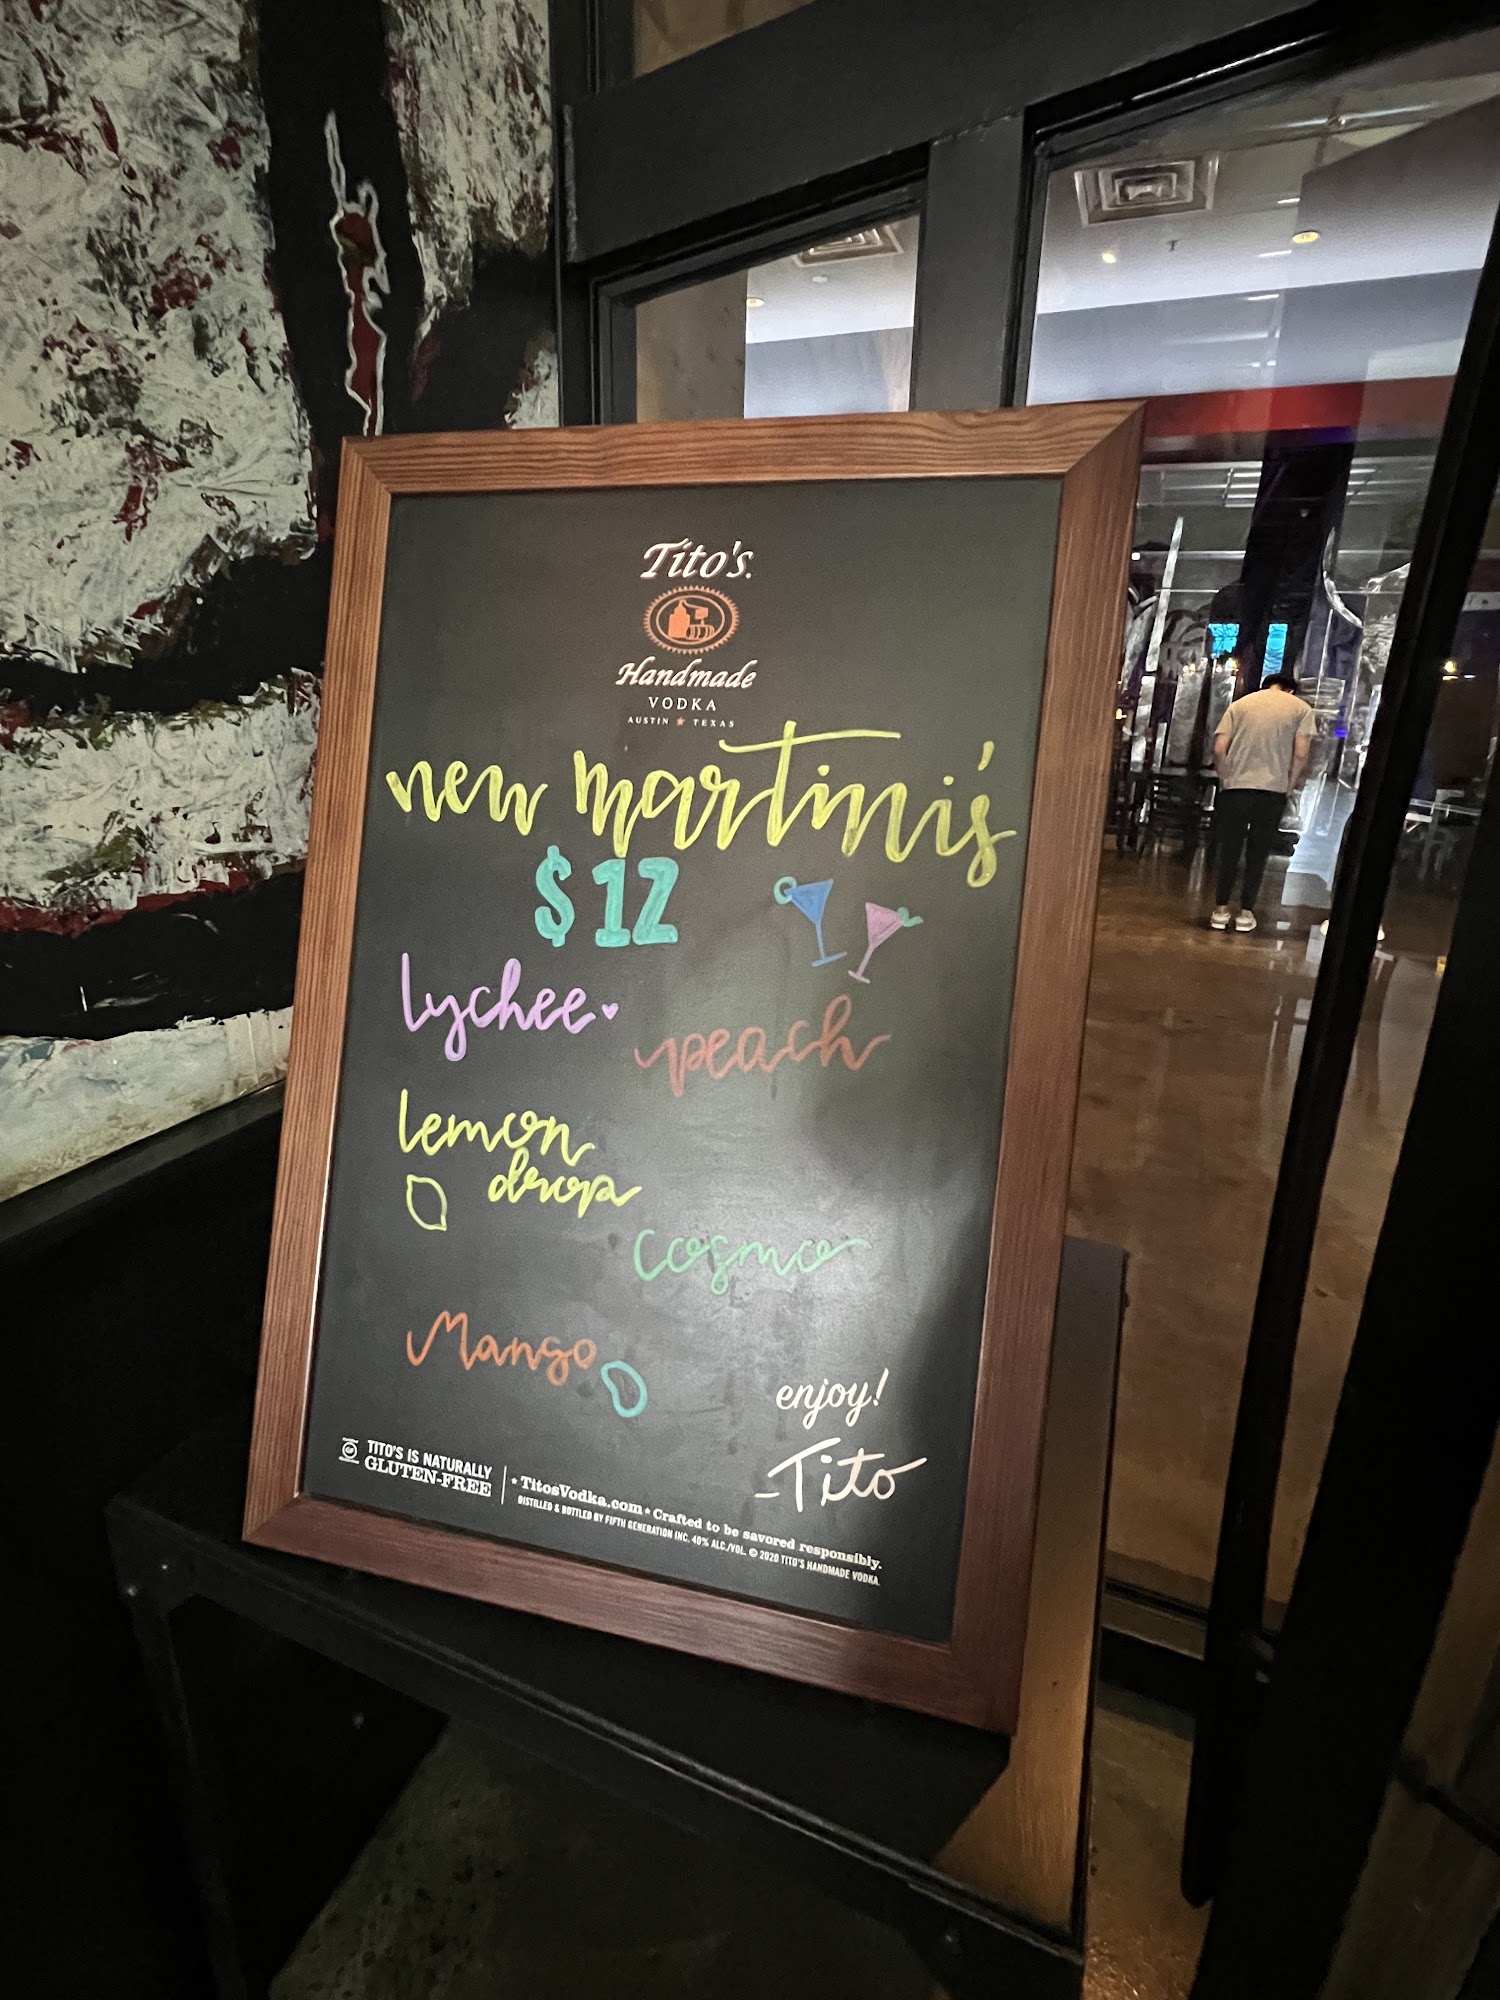 Tito's.
Handmade
VODKA
AUSTIN ★ TEXAS
new martini's
$12
lychee
peach
lemon
drop
cosmo
Mango
enjoy!
-Tito
GF
TITO'S IS NATURALLY
GLUTEN-FREE
* TitosVodka.com * Crafted to be savored responsibly.
DISTILLED & BOTTLED BY FIFTH GENERATION INC. 40% ALC./VOL. © 2020 TITO'S HANDMADE VODKA.